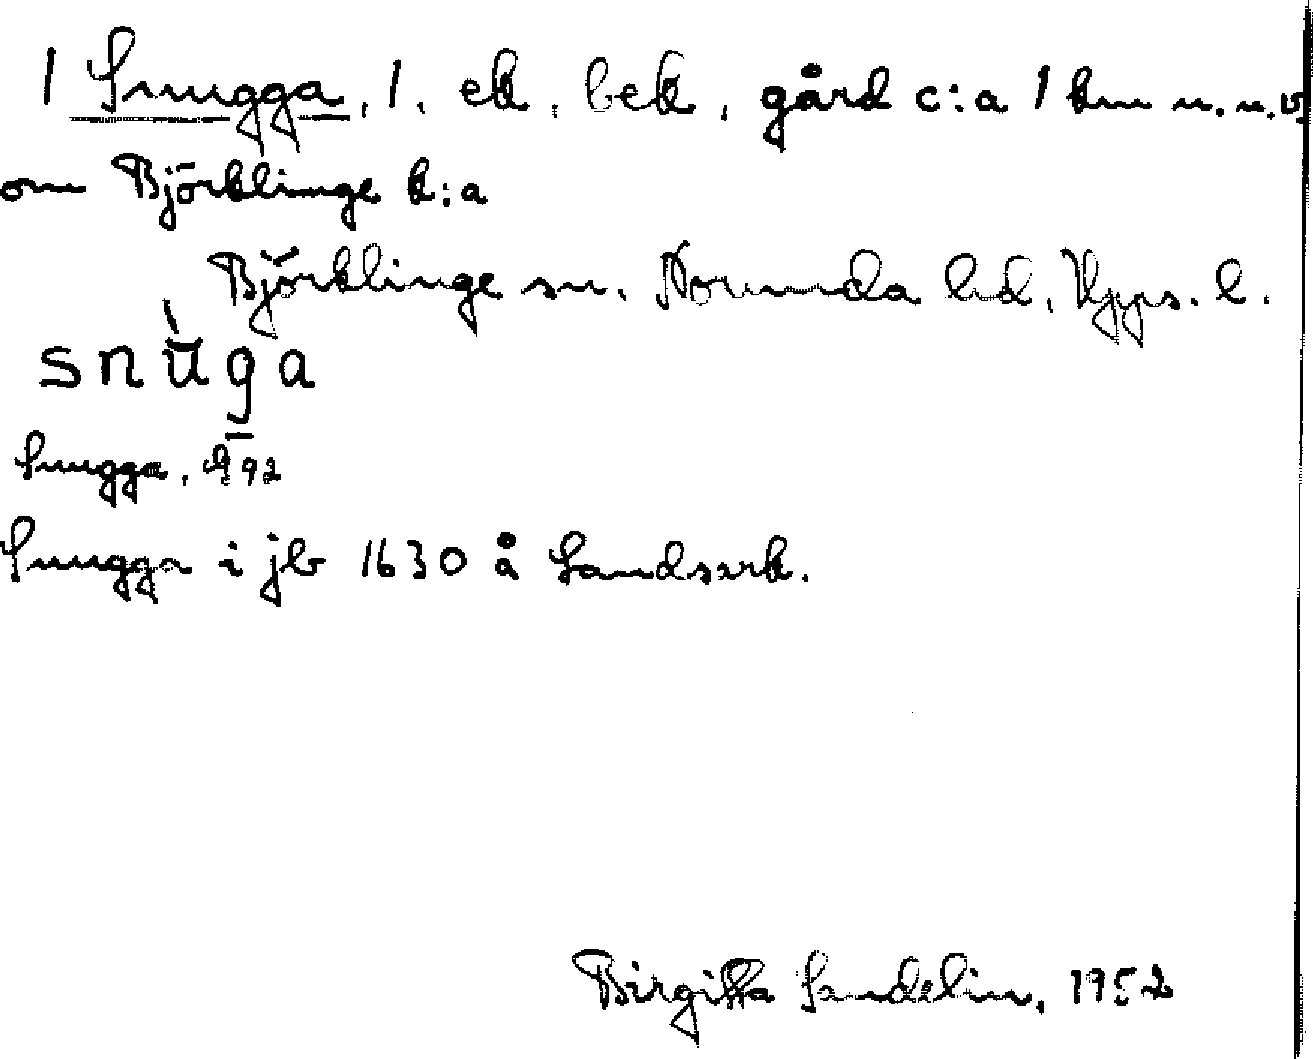 1 Snugga, 1. ek. bek. gård c:a 1 km n.n.v.
om Björklinge k:a
Björklinge sn. Norunda hd. Upps. l.
snùga
Snugga, 92
Snugga i jb 1630 å Landsark.
Birgitta Sandelin, 1952